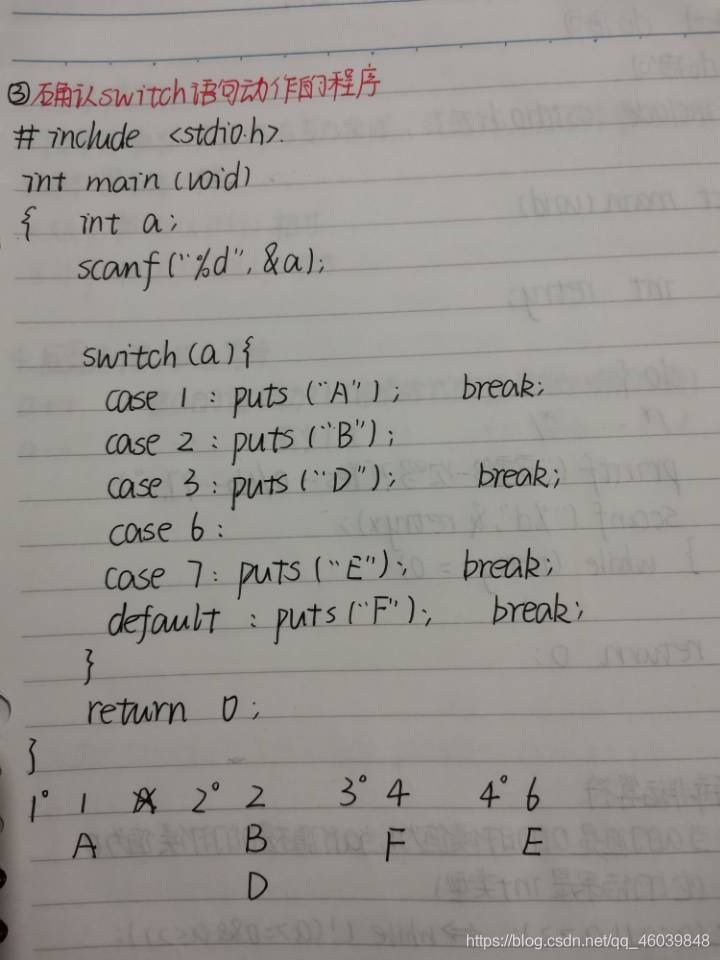 ③确认switch语句动作的程序
# include <stdio.h>.
int main (void)
{ int a;
scanf("%d", &a);
switch (a){
case 1 : puts ("A"); break;
case 2 : puts ("B");
case 3 : puts ("D"); break;
case 6 :
case 7 : puts ("E"); break;
default : puts ("F"); break;
}
return 0;
}
1° 1 2° 2 3° 4 4° 6
A B F E
D
https://blog.csdn.net/qq_46039848